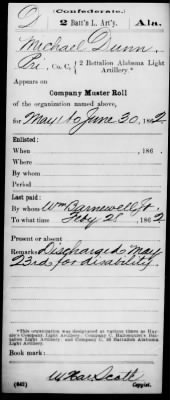 (Confederate.)
D 2 Batt'n L. Art'y. Ala.
Michael Dunn
Pri, Co. C, 2 Battalion Alabama Light Artillery.*
Appears on
Company Muster Roll
of the organization named above,
for May 1 to June 30, 1862.
Enlisted:
When , 186 .
Where
By whom
Period
Last paid:
By whom Wm Barnewell Jr.
To what time Feby 28, 1862
Present or absent
Remarks: Discharged May
23rd, for disability.
*This organization was designated at various times as
Light Artillery, Company C, Hallonquist's Battalion Light Artillery, and Company C, 2d Battalion Alabama Light Artillery.
Book mark:
(642) Copyist.